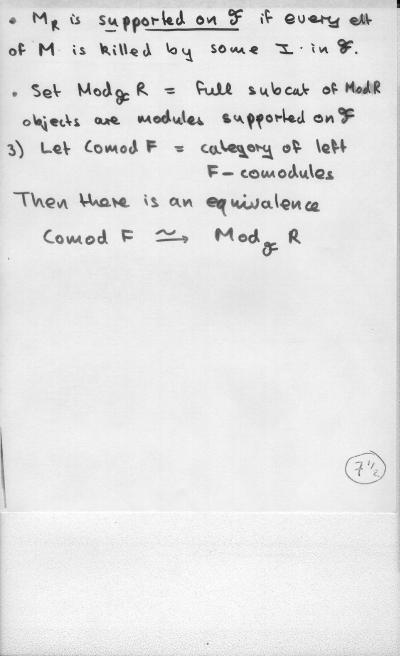 • M_R is supported on ℱ if every elt
of M is killed by some I in ℱ.
• Set Mod_ℱ R = full subcat of Mod R
objects are modules supported on ℱ
3) Let Comod F = category of left
F-comodules
Then there is an equivalence
Comod F ⥲ Mod_ℱ R
7 1/2